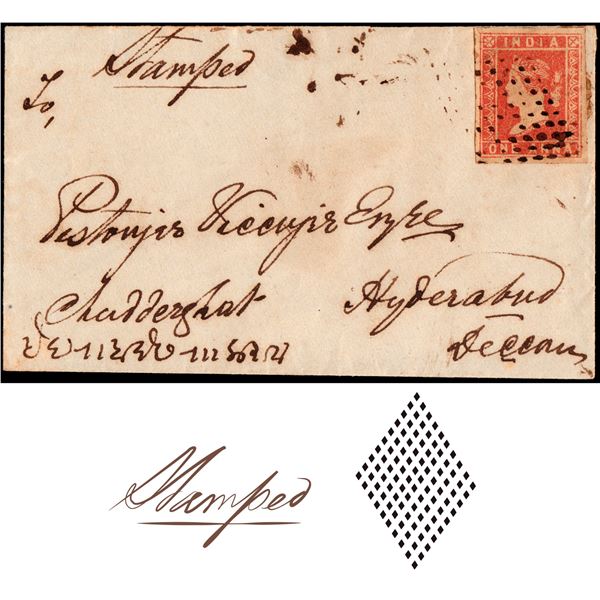 Stamped
INDIA
ONE ANNA
To,
Pestonjee Viccajee Esqre
Chudderghat Hyderabad
Deccan
Stamped